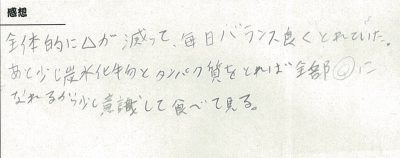 感想
全体的に△が減って、毎日バランス良くとれていた。
あと少し炭水化物とタンパク質をとれば全部◎に
なれるから少し意識して食べて見る。